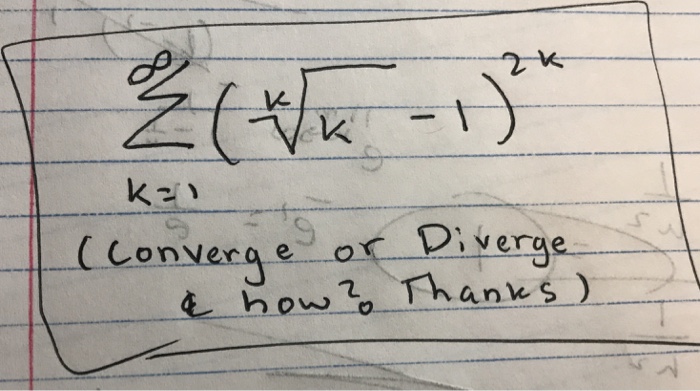 ∞
Σ (ᵏ√k - 1)²ᵏ
k=1
(Converge or Diverge
& how? Thanks)